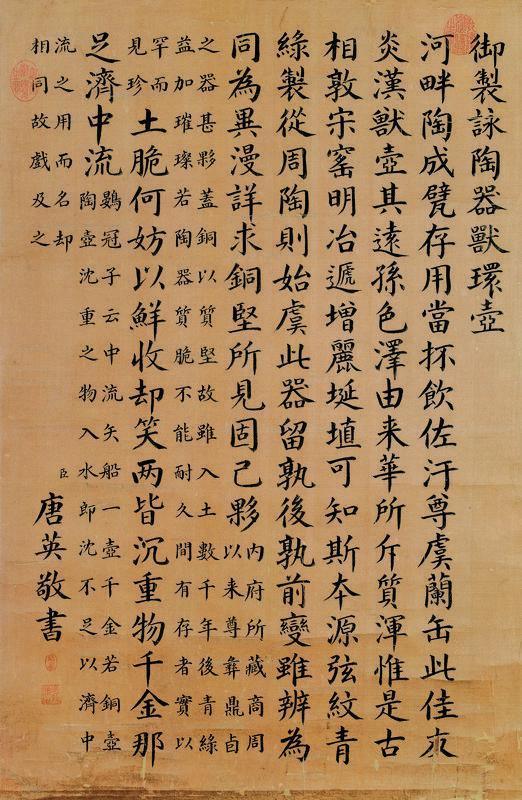 御製詠陶器獸環壺
河畔陶成甓存用當抔飲佐汙尊虞蘭缶此佳友
炎漢獸壺其遠孫色澤由来華所斥質渾惟是古
相敦宋窰明冶遞增麗埏埴可知斯本源弦紋青
綠製從周陶則始虞此器留孰後孰前變雖辨為
同為異漫詳求銅堅所見固已夥
內府所藏商周
以来尊彝鼎卣
之器甚夥蓋銅以質堅故雖入土數千年後青綠
益加璀璨若陶器質脆不能耐久間有存者實以
罕而
見珍
土脆何妨以鮮收却笑两皆沉重物千金那
足濟中流
鶡冠子云中流失船一壺千金若銅壺
陶壺沈重之物入水即沈不足以濟中
流之用而名却
相同故戲及之
臣唐英敬書